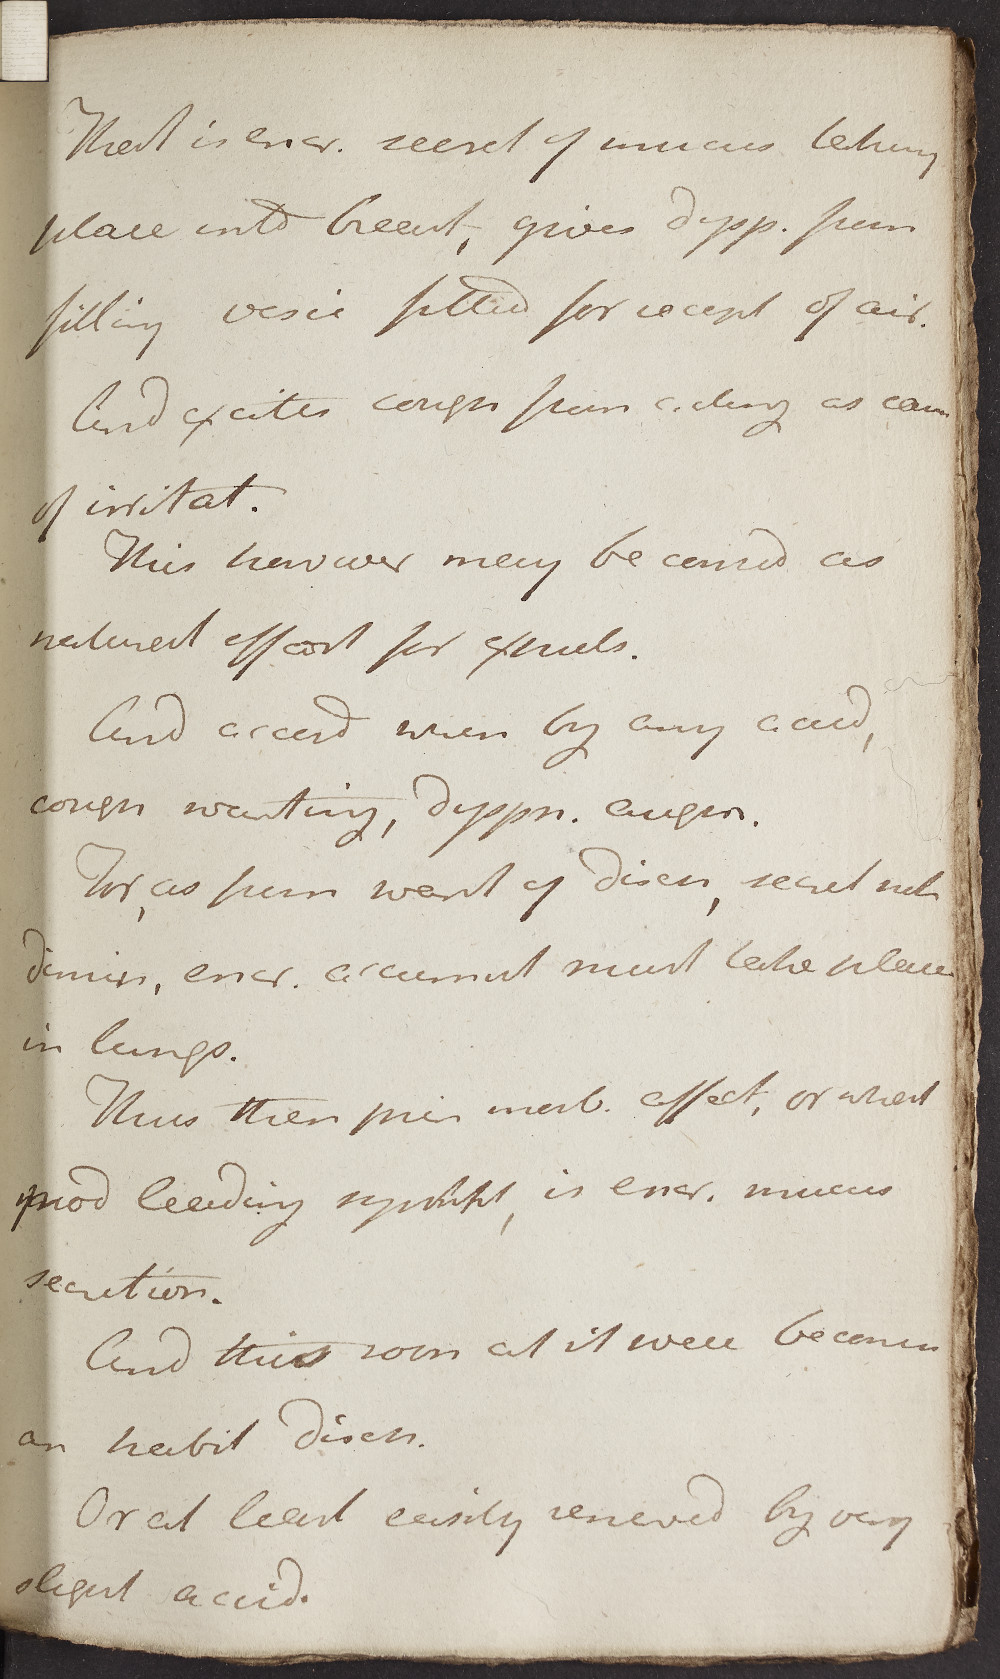 That is encr. secret of mucus taking
place into breast, gives dypp. from
filling vesic fitted for recept of air.
And excites cough from acting as cau
of irritat.
This however may be consid as
natural effort for expuls.
And accord when by any accid,
cough wanting, dyspn. augm.
For, as from want of disch, secret not
dimin, encr. accumut must take place
in lungs.
Thus then prin morb. effect, or what
prod leading sympt, is encr. mucus
secretion.
And this soon as it were becomes
an habit disch.
Or at least easily renewed by very
slight accid.